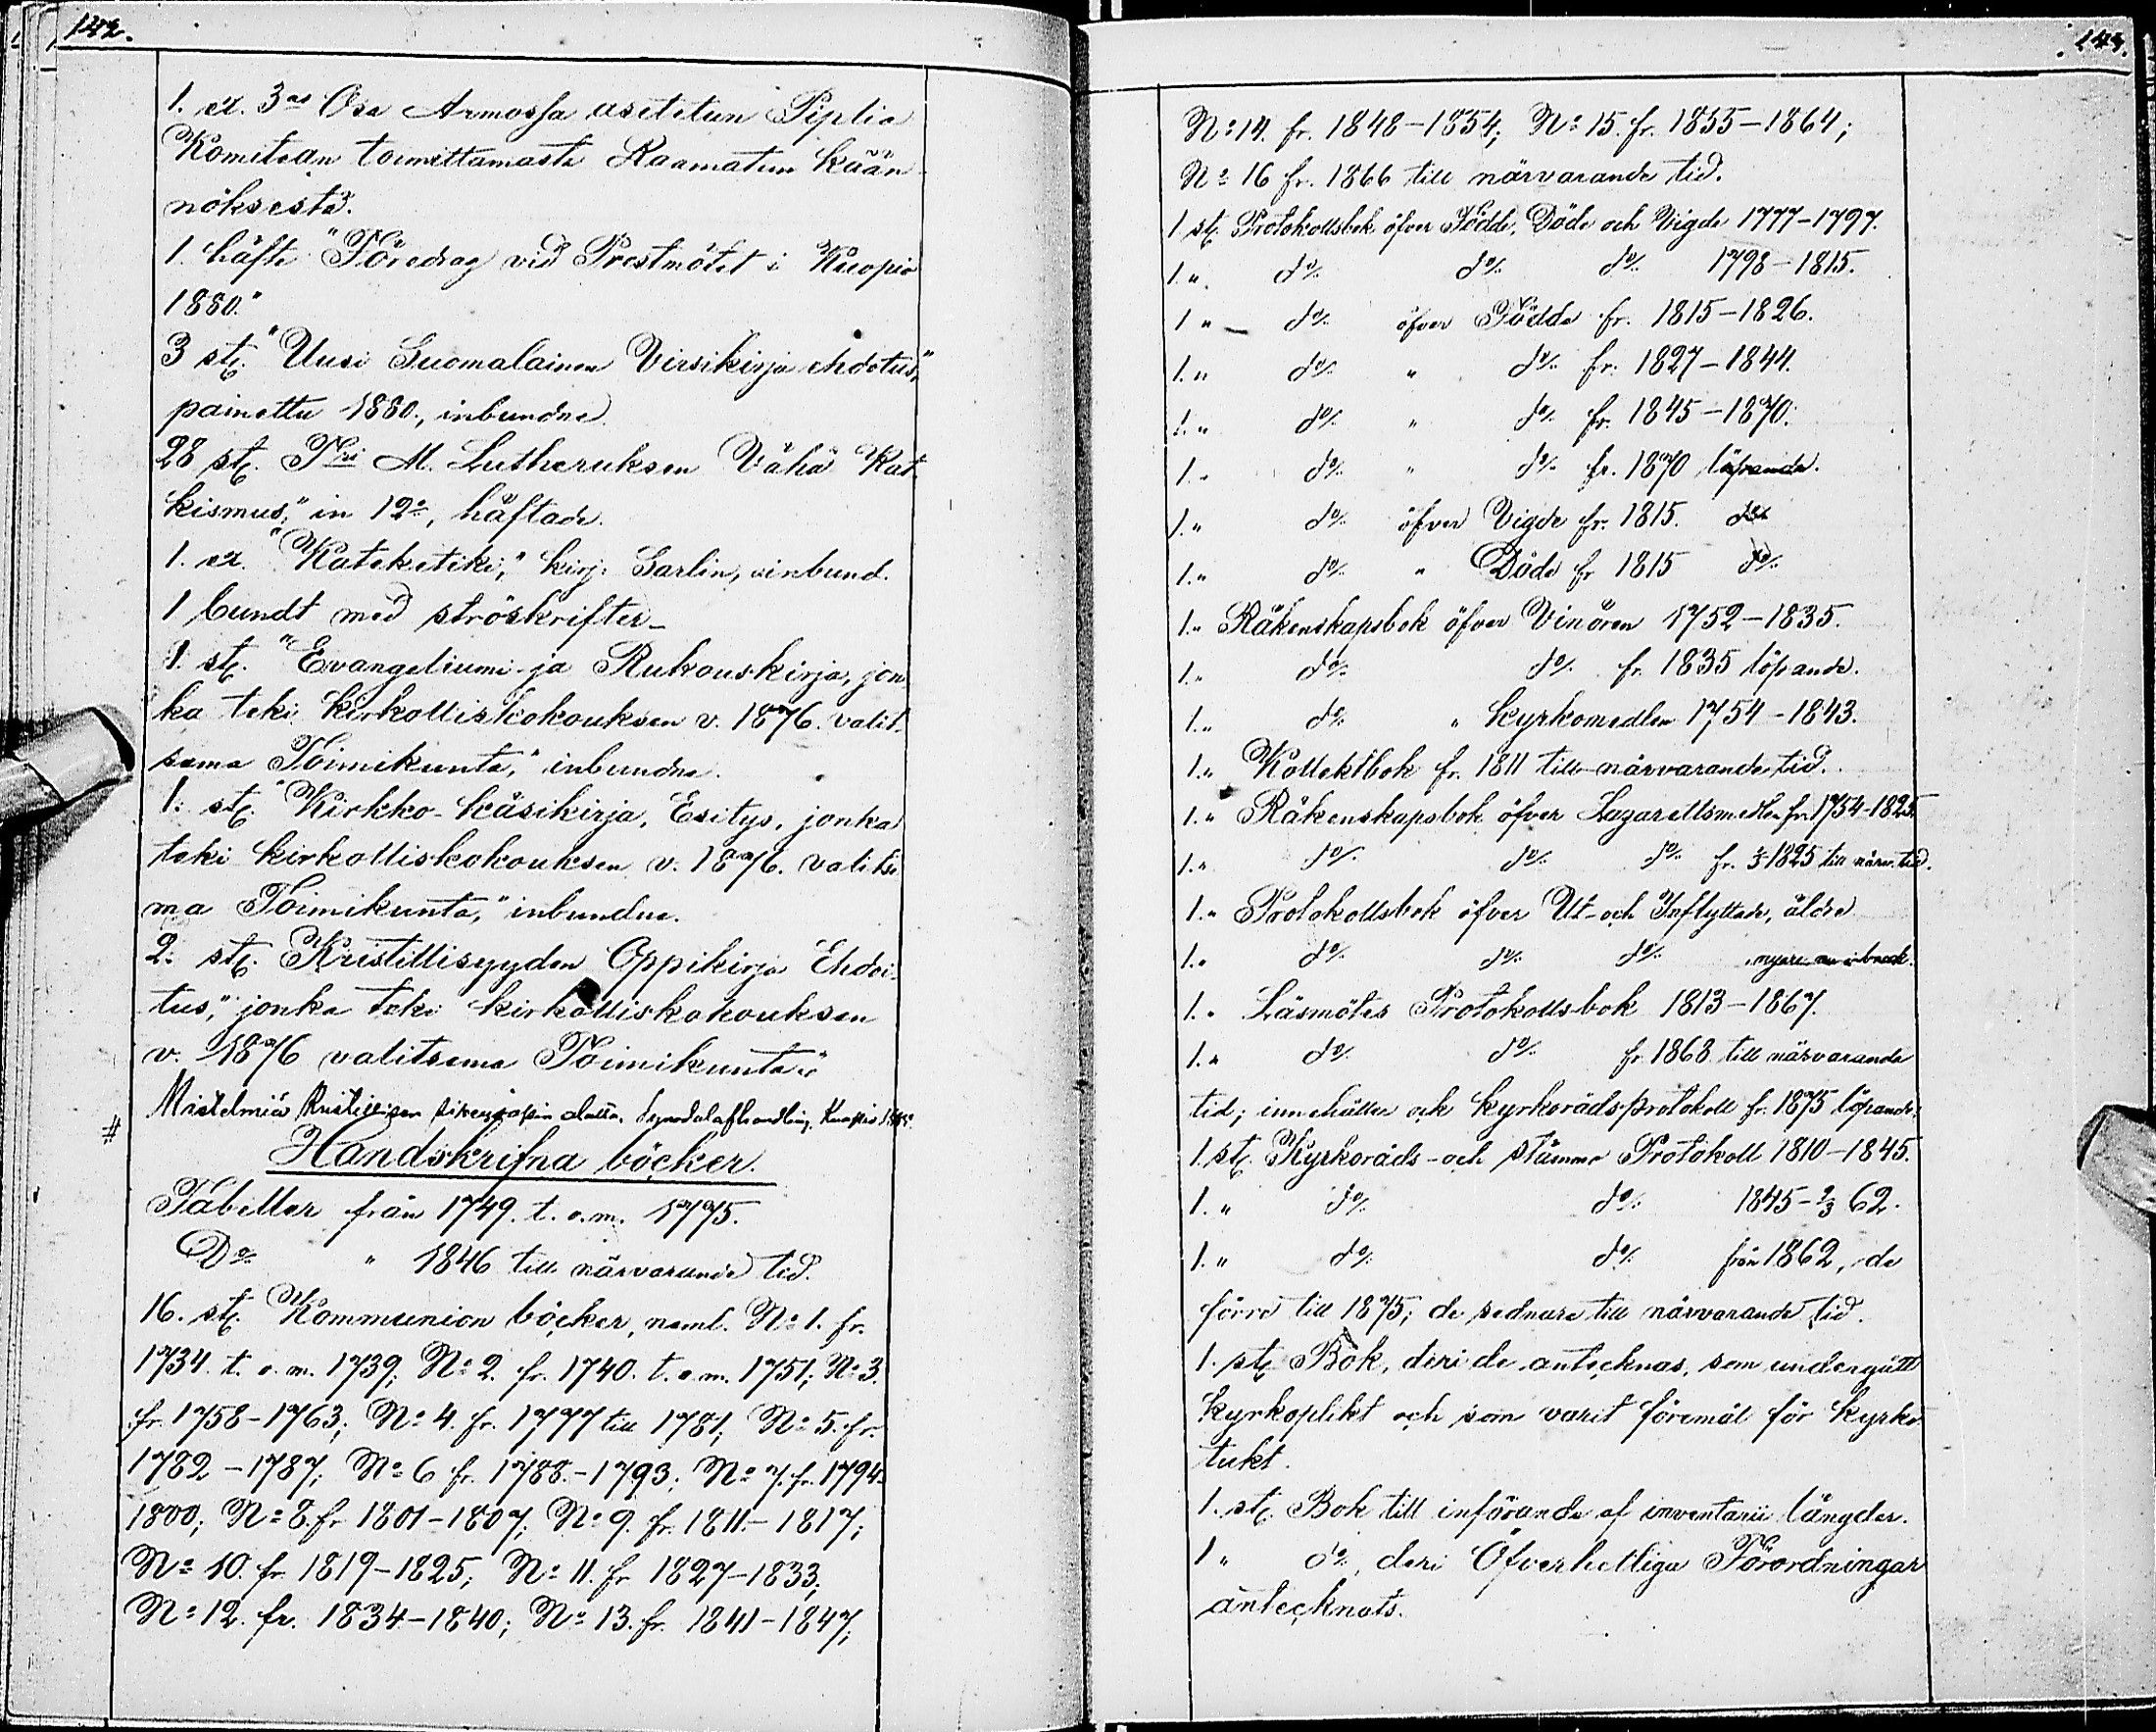 142.
1. ex. 3as Osa Armossa asetetun Piplia
Komitean toimittamasta Raamatun kään
nöksestä.
1 häfte "Föredrag vid Prestmötet i Kuopio
1880."
3 st. "Uusi Suomalainen Virsikirja ehdotus,"
painettu 1880., inbundne
28 st. Tri M. Lutheruksen Vähä Kat-
kismus," in 12o, häftade.
1. ex. "Kateketiki," kirj. Sarlin, inbund.
1 bundt med ströskrifter.
1. st. "Evangeliumi- ja Rukouskirja, jon-
ka teki kirkolliskokouksen v. 1876. valit-
sema Toimikunta," inbundne.
1. st. "Kirkko-käsikirja, Esitys, jonka
teki kirkolliskokouksen v. 1876. valitse
ma Toimikunta," inbundne.
2. st. Kristillisyyden Oppikirja Ehdoi-
tus," jonka teki kirkolliskokouksen
v. 1876 valitsema Toimikunta"
Mietelmiä Kristillisen alalla. Synodalafhandling, Kuopio
#
Handskrifna böcker.
Tabeller från 1749. t. o. m. 1775.
Do " 1846 till närvarande tid.
16. st. Kommunion böcker, neml. No 1. fr.
1734. t. o. m. 1739; No 2. fr. 1740. t. o. m. 1751; No 3.
fr. 1758-1763; No 4. fr. 1777 till 1781; No 5. fr.
1782-1787; No 6 fr. 1788.-1793; No 7. fr. 1794-
1800; No 8. fr 1801-1807; No 9. fr. 1811.-1817;
No 10. fr. 1819-1825; No 11. fr 1827-1833;
No 12. fr. 1834-1840; No 13. fr. 1841-1847;
143.
No 14. fr. 1848-1854; No 15. fr. 1855-1864;
No 16 fr. 1866 till närvarande tid.
1 st. Protokollsbok öfver Födde, Döde och Vigde 1777-1797.
1. " do do do 1798-1815.
1 " do öfver Födde fr. 1815-1826.
1. " do " do fr. 1827-1844.
1. " do " do fr. 1845-1870.
1. " do " do fr. 1870 löpande.
1. " do öfver Vigde fr. 1815. do
1. " do " Döde fr 1815 do
1. " Räkenskapsbok öfver Vinören 1752-1835.
1. " do do fr. 1835 löpande.
1. " do " Kyrkomedlen 1754-1843.
1. " Kollektbok fr. 1811 till närvarande tid.
1. " Räkenskapsbok öfver Lazarettsmedlen fr. 1754-1825.
1. " do do do fr. 1825 till närv. tid.
1. " Protokollsbok öfver Ut- och Inflyttade, äldre
1. " do do do nyare
1. " Läsmötes Protokolls-bok 1813-1867.
1. " do do fr 1868 till närvarande
tid; innehåller ock kyrkorådsprotokoll fr. 1875 löpande.
1. st. Kyrkoråds- och stämmo Protokoll 1810-1845.
1. " do do 1845-2/3 62.
1. " do do från 1862, de
förre till 1875; de sednare till närvarande tid.
1. st. Bok, deri de antecknas, som undergått
kyrkoplikt och som varit föremål för kyrko
tukt.
1. st. Bok till införande af inventarii längder.
1 " do, deri Öfverhetliga Förordningar
antecknats.